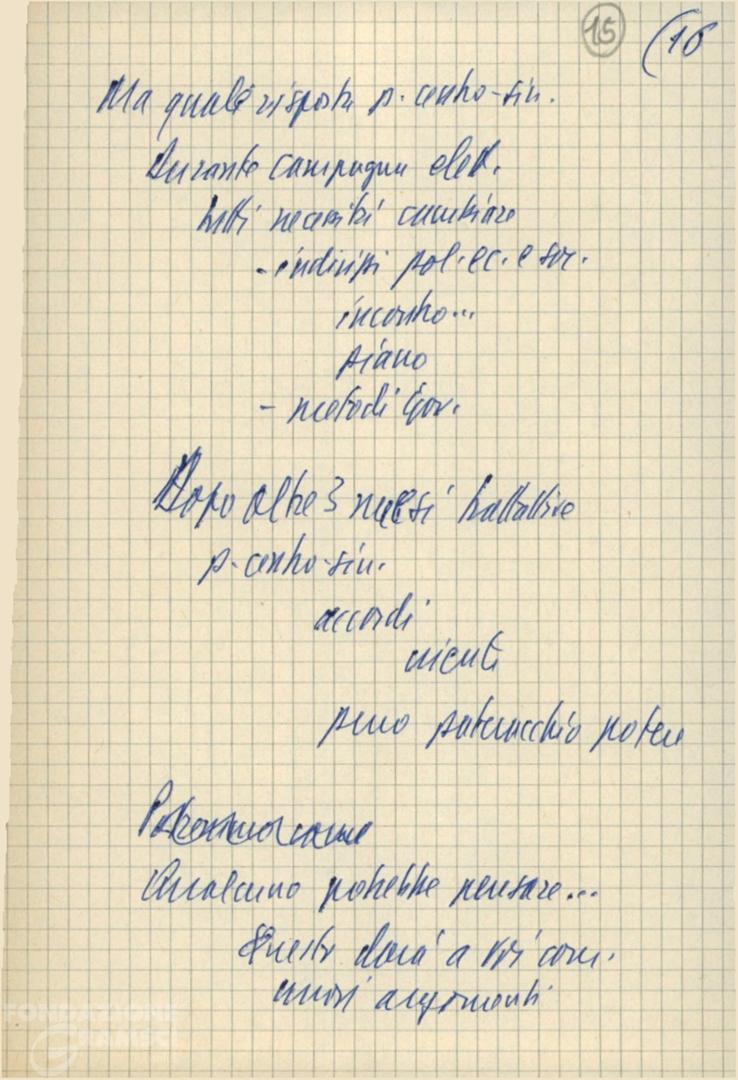 15 (16
Ma quale risposta p. centro-sin.
Durante campagna elett.
tutti necessità cambiare
- indirizzi pol. ec. e soc.
incontro...
piano
- metodi Gov.
Dopo oltre 3 mesi trattative
p. centro-sin.
accordi
niente
puro pateracchio potere
Qualcuno potrebbe pensare...
Questo darà a voi com.
nuovi argomenti
FONDAZIONE
GRAMSCI